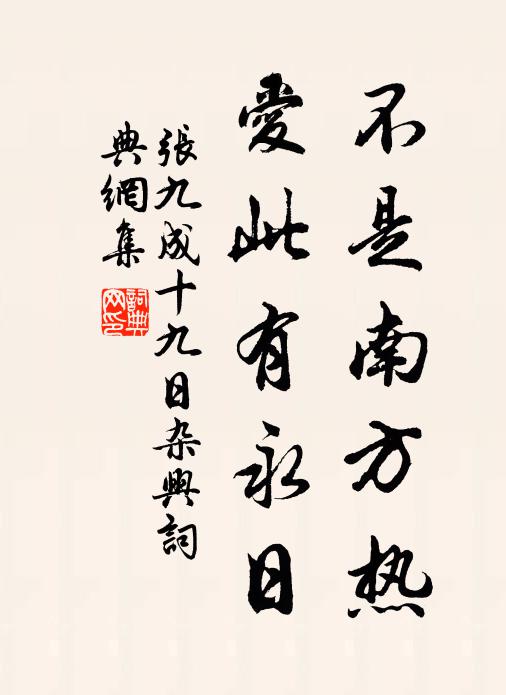 不是南方热
愛此有永日
張九成十九日杂興詞
典網集
詞典
网印